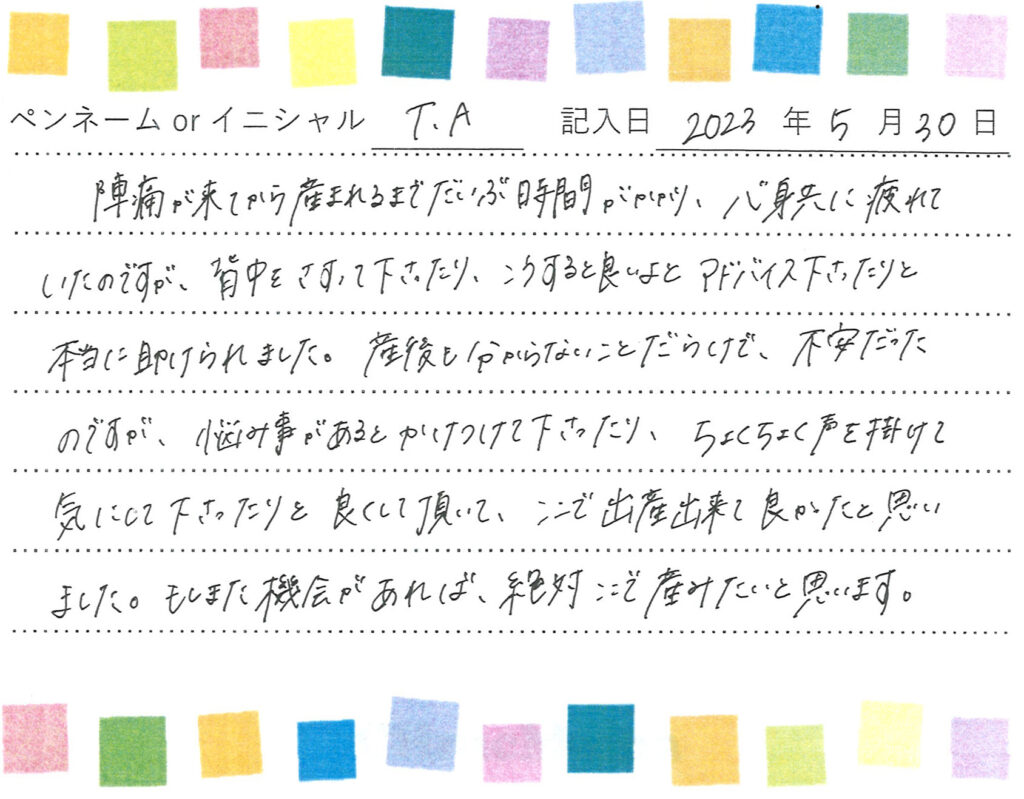 ペンネーム or イニシャル T.A 記入日 2023 年 5 月 30 日
陣痛が来てから産まれるまでだいぶ時間がかかり、心身共に疲れて
いたのですが、背中をさすって下さったり、こうすると良いよとアドバイス下さったりと
本当に助けられました。産後も分からないことだらけで、不安だった
のですが、悩み事があるとかけつけて下さったり、ちょくちょく声を掛けて
気にして下さったりと良くして頂いて、ここで出産出来て良かったと思い
ました。もしまた機会があれば、絶対ここで産みたいと思います。